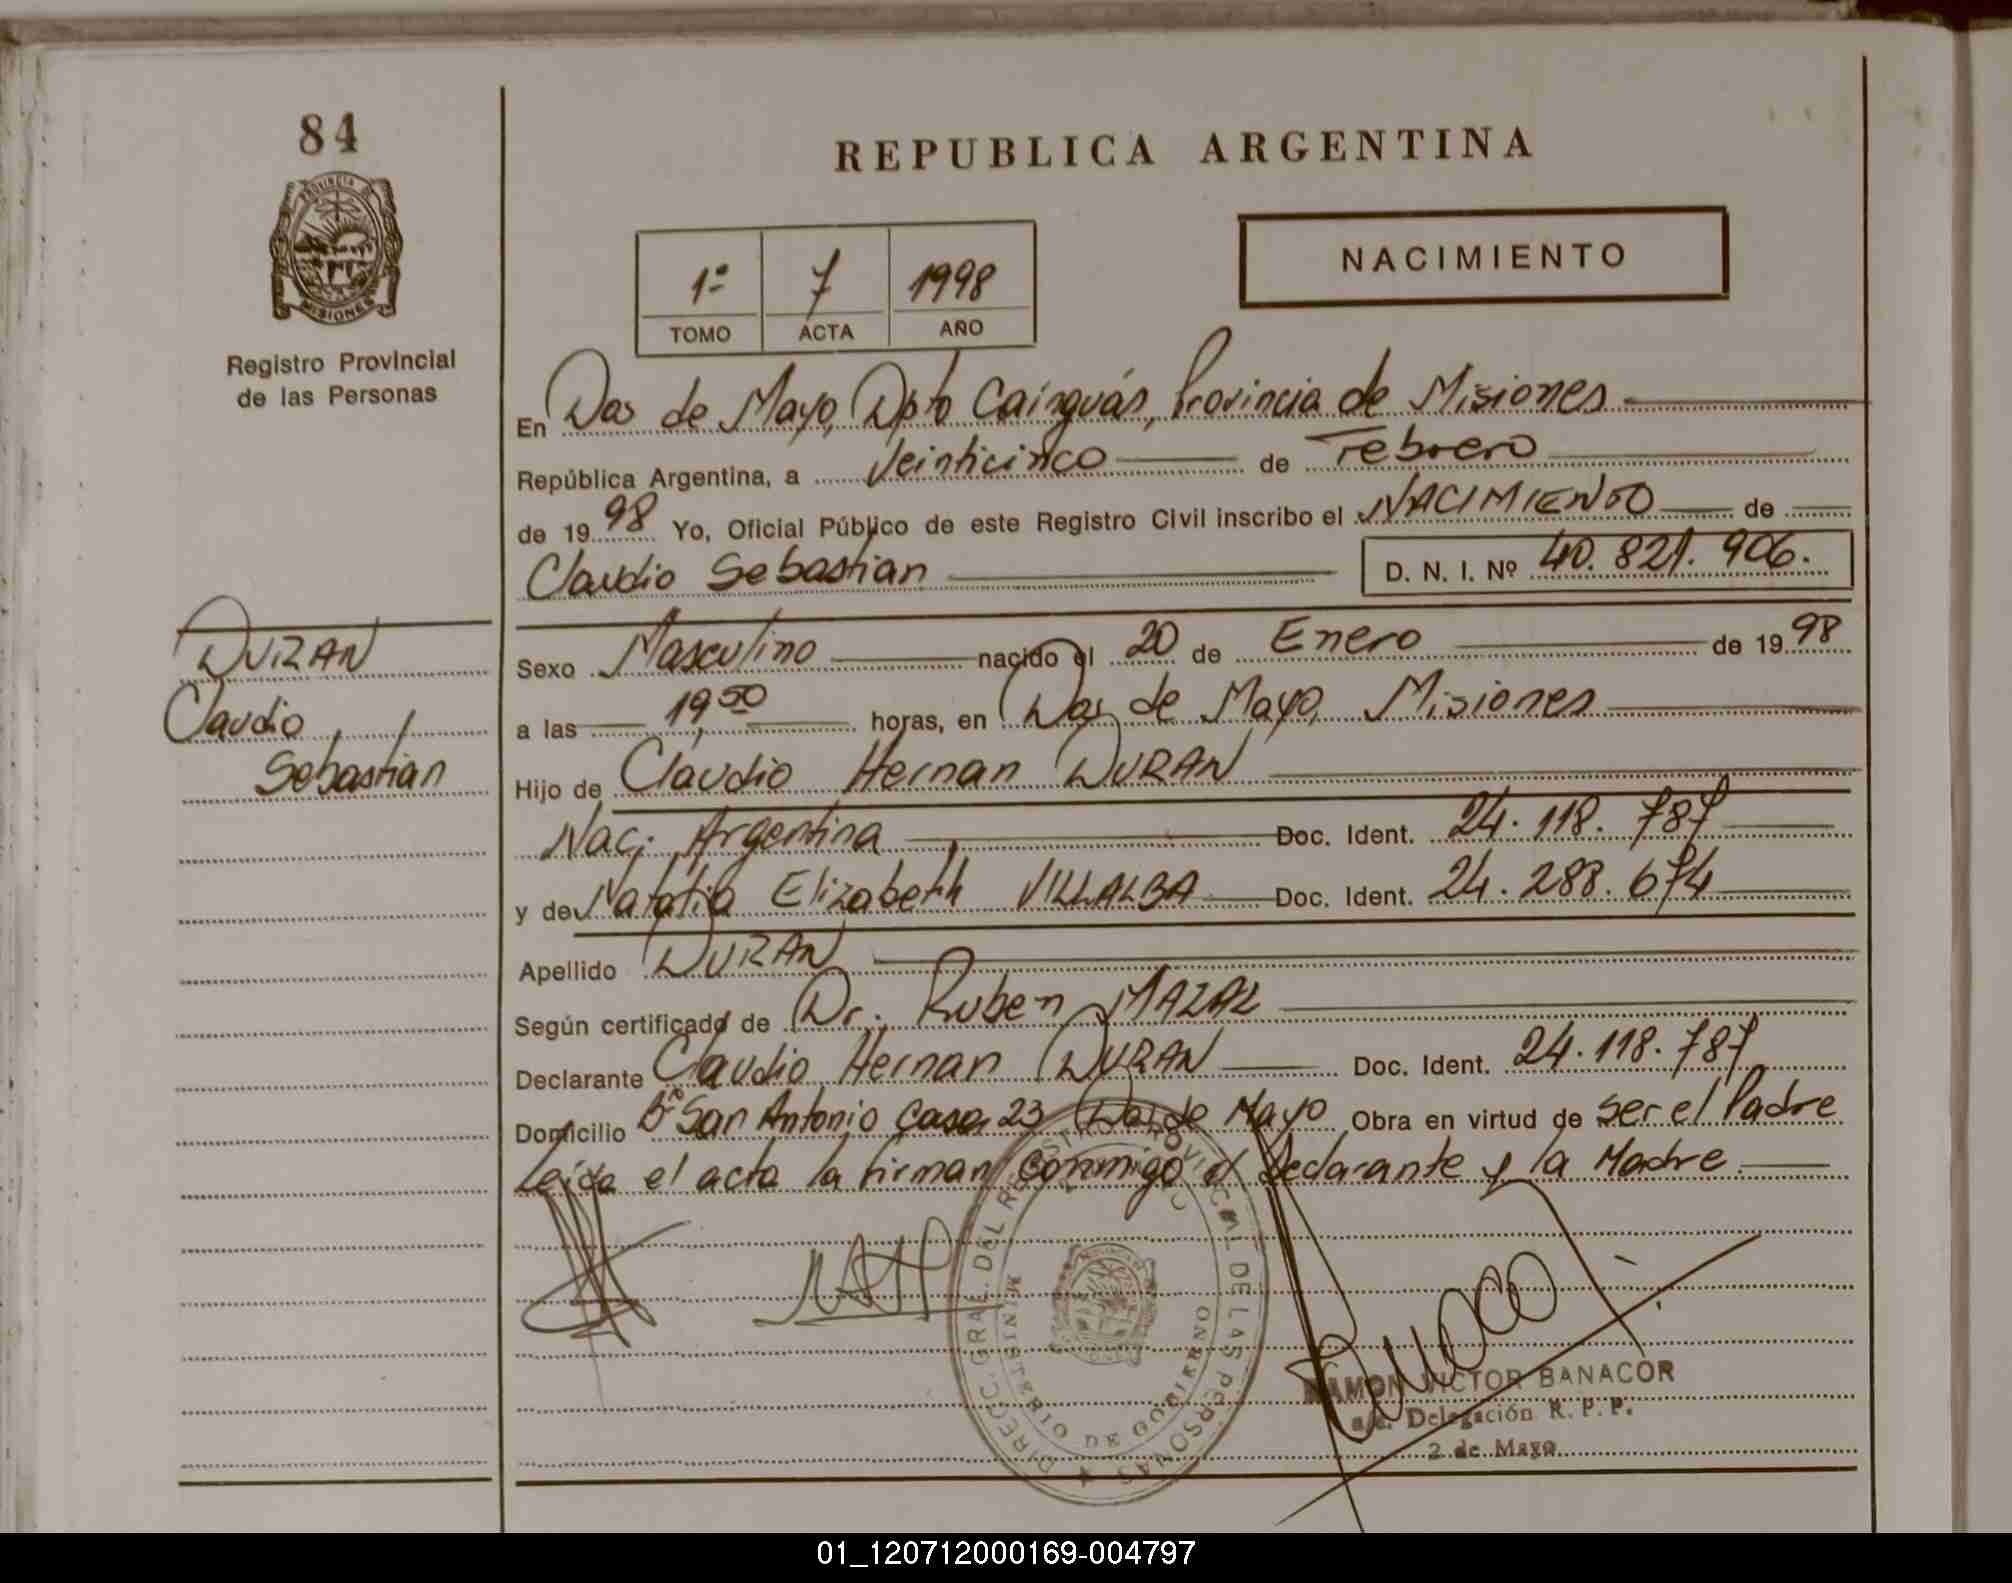 84
PROVINCIA DE
MISIONES
Registro Provincial
de las Personas
DURAN
Claudio
Sebastian
REPUBLICA ARGENTINA
1º 7 1998
TOMO ACTA AÑO
NACIMIENTO
En Dos de Mayo, Dpto Cainguás, Provincia de Misiones
República Argentina, a Veinticinco de Febrero
de 1998 Yo, Oficial Público de este Registro Civil inscribo el NACIMIENTO de
Claudio Sebastian D. N. I. Nº 40.821.906.
Sexo Masculino nacido el 20 de Enero de 1998
a las 19,50 horas, en Dos de Mayo, Misiones
Hijo de Claudio Hernan DURAN
Nac; Argentina Doc. Ident. 24.118.787
y de Natalia Elizabeth VILLALBA Doc. Ident. 24.288.674
Apellido DURAN
Según certificado de Dr. Ruben MAZAL
Declarante Claudio Hernan DURAN Doc. Ident. 24.118.787
Domicilio Bº San Antonio Casa 23 Dos de Mayo Obra en virtud de ser el Padre
Leída el acta la firman conmigo el Declarante y la Madre.
DIRECC. GRAL. DEL REGISTRO PROVINCIAL DE LAS PERSONAS
MINISTERIO DE GOBIERNO
RAMON VICTOR BANACOR
a/c. Delegación R. P. P.
2 de Mayo
01_120712000169-004797